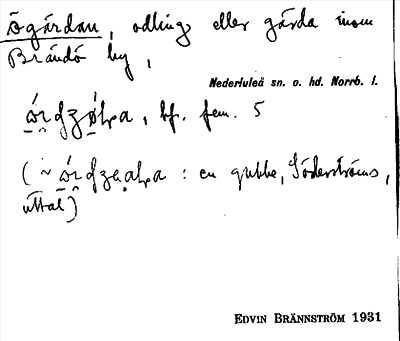 Ögärdan, odling eller gärda inom
Brändö by,
Nederluleå sn. o. hd. Norrb. l.
, bf. fem. 5
( ~ : en gubbe, Söderströms,
uttal)
EDVIN BRÄNNSTRÖM 1931